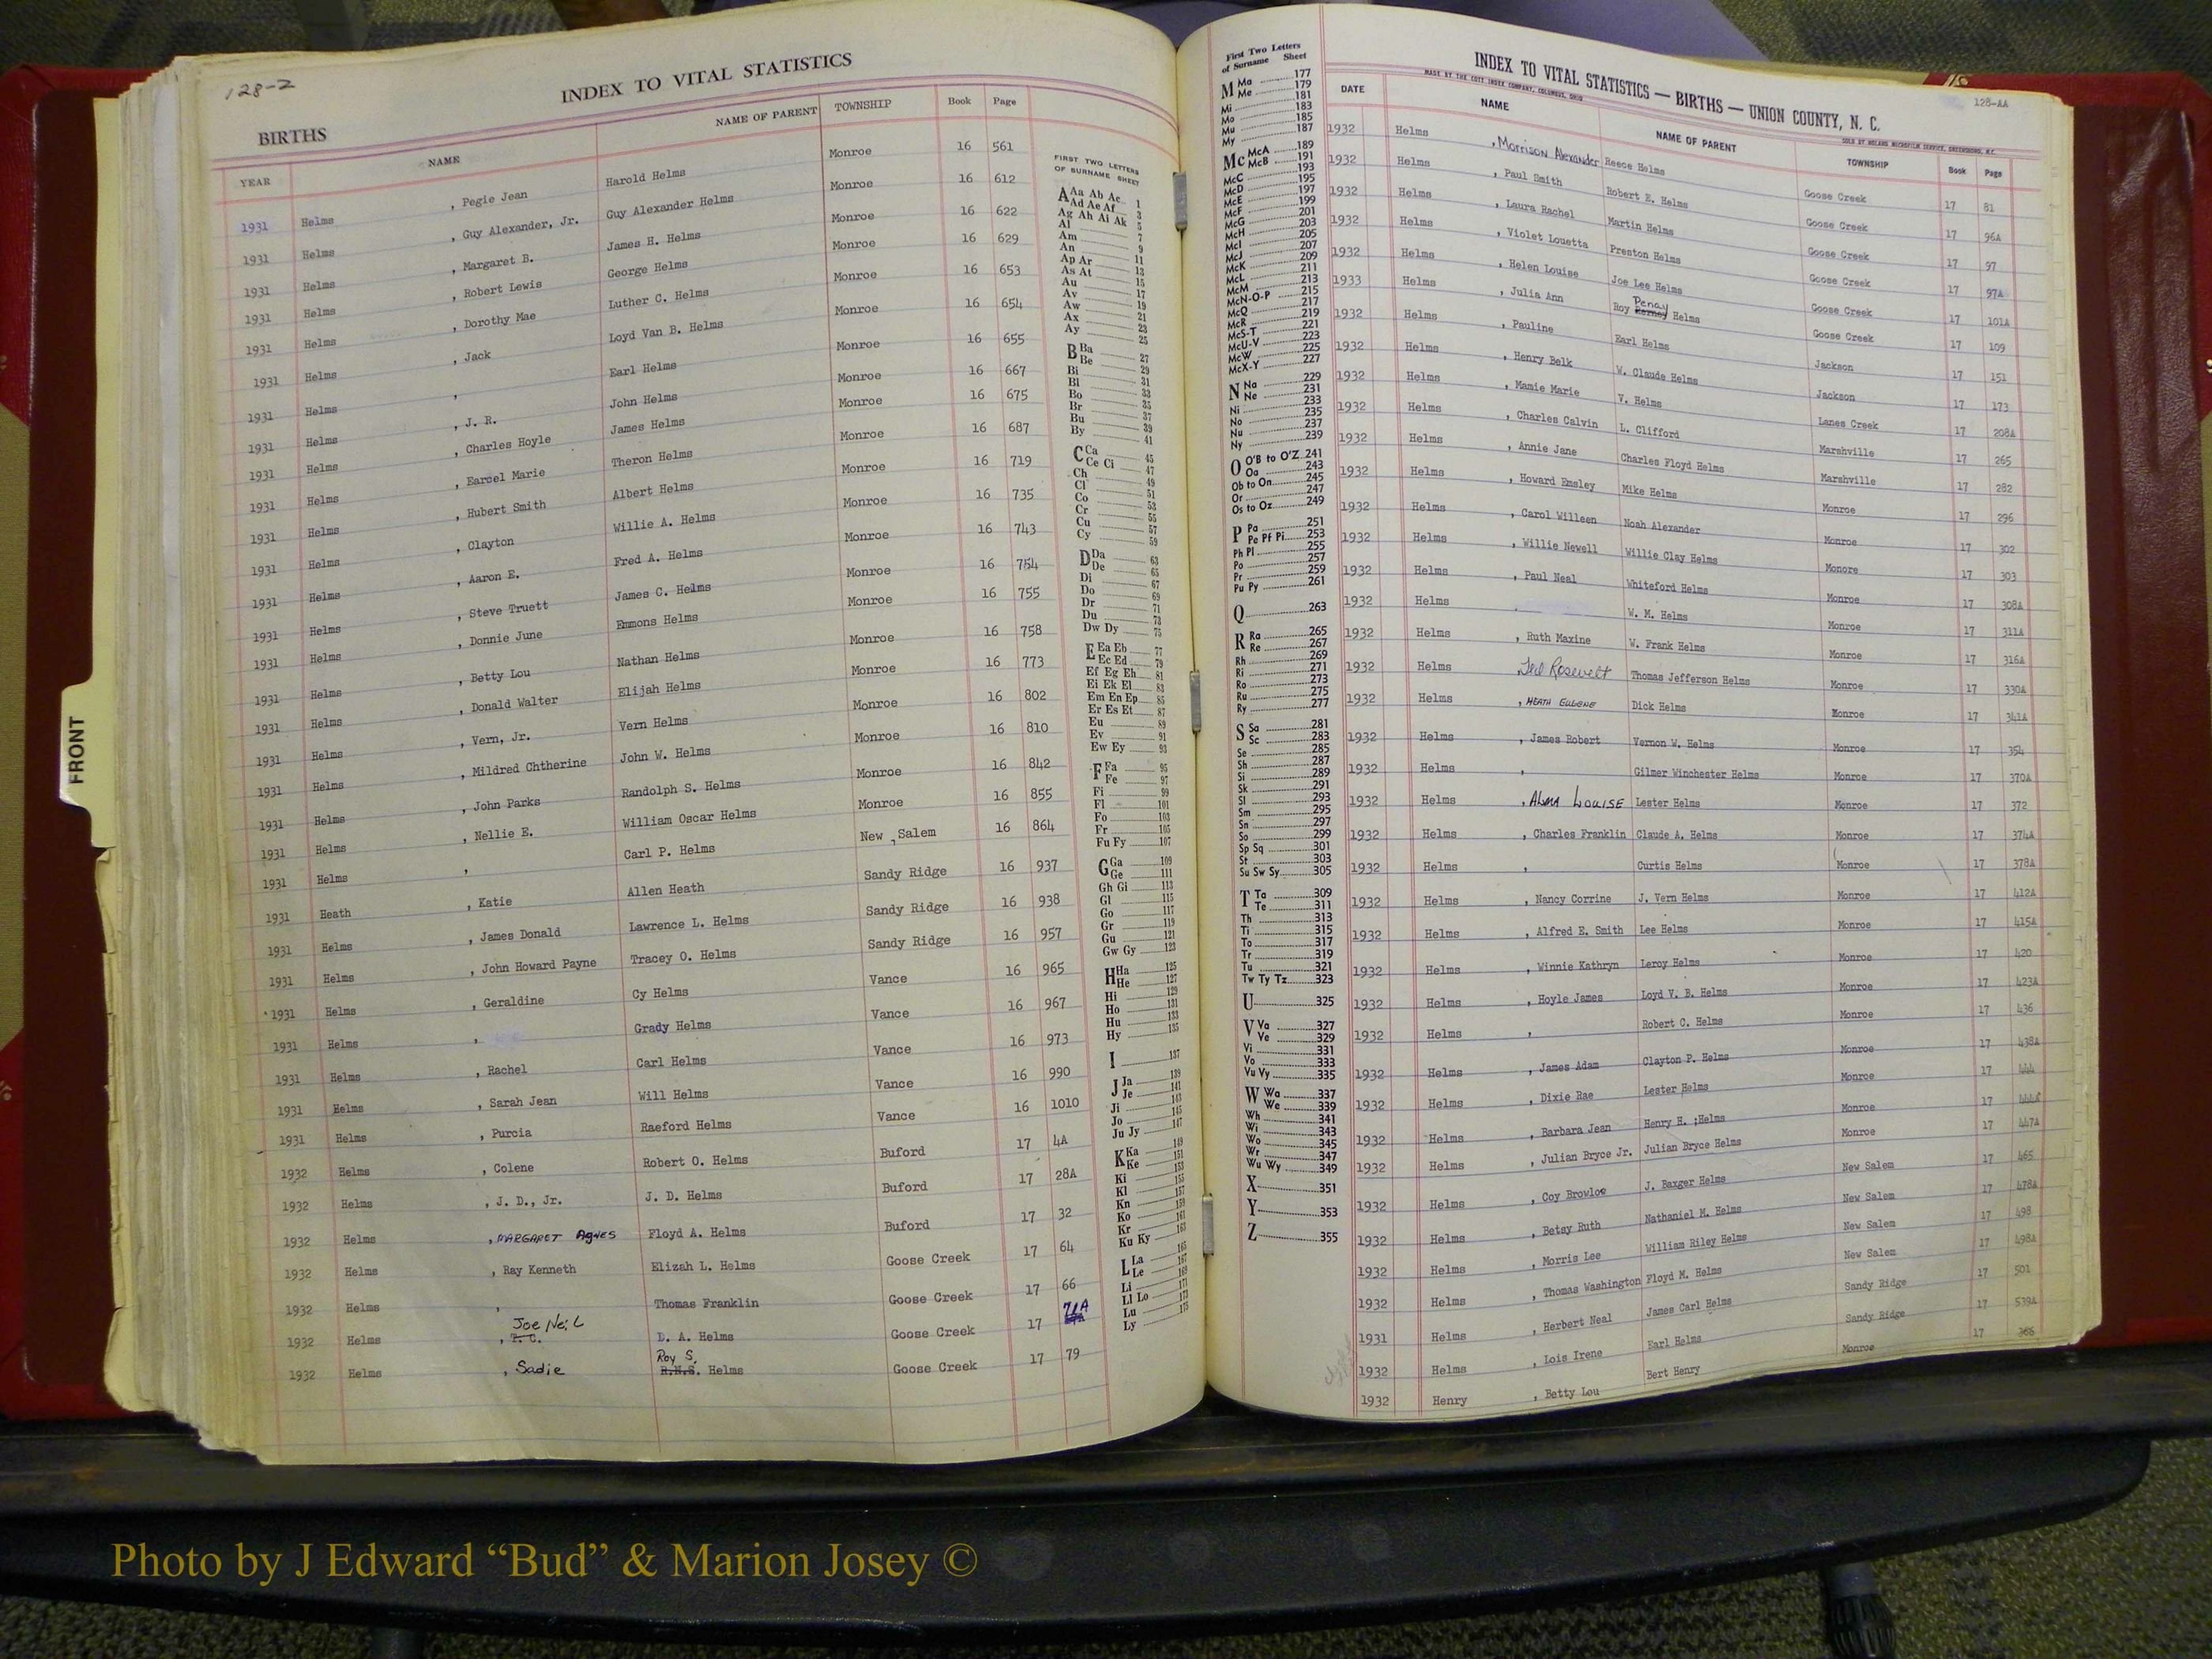 128-Z
INDEX TO VITAL STATISTICS
BIRTHS
YEAR NAME NAME OF PARENT TOWNSHIP Book Page
1931 Helms , Pegie Jean Harold Helms Monroe 16 561
1931 Helms , Guy Alexander, Jr. Guy Alexander Helms Monroe 16 612
1931 Helms , Margaret B. James H. Helms Monroe 16 622
1931 Helms , Robert Lewis George Helms Monroe 16 629
1931 Helms , Dorothy Mae Luther C. Helms Monroe 16 653
1931 Helms , Jack Loyd Van B. Helms Monroe 16 654
1931 Helms , Earl Helms Monroe 16 655
1931 Helms , J. R. John Helms Monroe 16 667
1931 Helms , Charles Hoyle James Helms Monroe 16 675
1931 Helms , Earcel Marie Theron Helms Monroe 16 687
1931 Helms , Hubert Smith Albert Helms Monroe 16 719
1931 Helms , Clayton Willie A. Helms Monroe 16 735
1931 Helms , Aaron E. Fred A. Helms Monroe 16 743
1931 Helms , Steve Truett James C. Helms Monroe 16 754
1931 Helms , Donnie June Emmons Helms Monroe 16 755
1931 Helms , Betty Lou Nathan Helms Monroe 16 758
1931 Helms , Donald Walter Elijah Helms Monroe 16 773
1931 Helms , Vern, Jr. Vern Helms Monroe 16 802
1931 Helms , Mildred Chtherine John W. Helms Monroe 16 810
1931 Helms , John Parks Randolph S. Helms Monroe 16 842
1931 Helms , Nellie E. William Oscar Helms Monroe 16 855
1931 Helms , Carl P. Helms New Salem 16 864
1931 Heath , Katie Allen Heath Sandy Ridge 16 937
1931 Helms , James Donald Lawrence L. Helms Sandy Ridge 16 938
1931 Helms , John Howard Payne Tracey O. Helms Sandy Ridge 16 957
1931 Helms , Geraldine Cy Helms Vance 16 965
1931 Helms , Grady Helms Vance 16 967
1931 Helms , Rachel Carl Helms Vance 16 973
1931 Helms , Sarah Jean Will Helms Vance 16 990
1931 Helms , Purcia Raeford Helms Vance 16 1010
1932 Helms , Colene Robert O. Helms Buford 17 4A
1932 Helms , J. D., Jr. J. D. Helms Buford 17 28A
1932 Helms , MARGARET AGNES Floyd A. Helms Buford 17 32
1932 Helms , Ray Kenneth Elizah L. Helms Goose Creek 17 64
1932 Helms , Thomas Franklin Goose Creek 17 66
Joe Neil 71A
1932 Helms , D. A. Helms Goose Creek 17
Roy S.
1932 Helms , Sadie R.N.S. Helms Goose Creek 17 79
FIRST TWO LETTERS
OF SURNAME SHEET
A Aa Ab Ac 1
Ad Ae Af 3
Ag Ah Ai Ak 5
Al 7
Am 9
An 11
Ap Ar 13
As At 15
Au 17
Av 19
Aw 21
Ax 23
Ay 25
B Ba 27
Be 29
Bi 31
Bl 33
Bo 35
Br 37
Bu 39
By 41
C Ca 45
Ce Ci 47
Ch 49
Cl 51
Co 53
Cr 55
Cu 57
Cy 59
D Da 63
De 65
Di 67
Do 69
Dr 71
Du 73
Dw Dy 75
E Ea Eb 77
Ec Ed 79
Ef Eg Eh 81
Ei Ek El 83
Em En Ep 85
Er Es Et 87
Eu 89
Ev 91
Ew Ey 93
F Fa 95
Fe 97
Fi 99
Fl 101
Fo 103
Fr 105
Fu Fy 107
G Ga 109
Ge 111
Gh Gi 113
Gl 115
Go 117
Gr 119
Gu 121
Gw Gy 123
H Ha 125
He 127
Hi 129
Ho 131
Hu 133
Hy 135
I 137
J Ja 139
Je 141
Ji 143
Jo 145
Ju Jy 147
K Ka 149
Ke 151
Ki 153
Kl 155
Kn 157
Ko 159
Kr 161
Ku Ky 163
L La 165
Le 167
Li 169
Ll Lo 171
Lu 173
Ly 175
First Two Letters
of Surname Sheet
M Ma 177
Me 179
Mi 181
Mo 183
Mu 185
My 187
Mc McA 189
McB 191
McC 193
McD 195
McE 197
McF 199
McG 201
McH 203
McI 205
McJ 207
McK 209
McL 211
McM 213
McN-O-P 215
McQ 217
McR 219
McS-T 221
McU-V 223
McW 225
McX-Y 227
N Na 229
Ne 231
Ni 233
No 235
Nu 237
Ny 239
O O'B to O'Z 241
Oa 243
Ob to On 245
Or 247
Os to Oz 249
P Pa 251
Pe Pf Pi 253
Ph Pl 255
Po 257
Pr 259
Pu Py 261
Q 263
R Ra 265
Re 267
Rh 269
Ri 271
Ro 273
Ru 275
Ry 277
S Sa 281
Sc 283
Se 285
Sh 287
Si 289
Sk 291
Sl 293
Sm 295
Sn 297
So 299
Sp Sq 301
St 303
Su Sw Sy 305
T Ta 309
Te 311
Th 313
Ti 315
To 317
Tr 319
Tu 321
Tw Ty Tz 323
U 325
V Va 327
Ve 329
Vi 331
Vo 333
Vu Vy 335
W Wa 337
We 339
Wh 341
Wi 343
Wo 345
Wr 347
Wu Wy 349
X 351
Y 353
Z 355
128-AA
INDEX TO VITAL STATISTICS — BIRTHS — UNION COUNTY, N. C.
MADE BY THE COTT INDEX COMPANY, COLUMBUS, OHIO
SOLD BY MCLANE MICROFILM SERVICE, GREENSBORO, N.C.
DATE NAME NAME OF PARENT TOWNSHIP Book Page
1932 Helms , Morrison Alexander Reece Helms Goose Creek 17 81
1932 Helms , Paul Smith Robert E. Helms Goose Creek 17 96A
1932 Helms , Laura Rachel Martin Helms Goose Creek 17 97
1932 Helms , Violet Louetta Preston Helms Goose Creek 17 97A
1932 Helms , Helen Louise Joe Lee Helms Goose Creek 17 101A
Penoy
1933 Helms , Julia Ann Roy Helms Goose Creek 17 109
1932 Helms , Pauline Earl Helms Jackson 17 151
1932 Helms , Henry Belk W. Claude Helms Jackson 17 173
1932 Helms , Mamie Marie V. Helms Lanes Creek 17 208A
1932 Helms , Charles Calvin L. Clifford Marshville 17 265
1932 Helms , Annie Jane Charles Floyd Helms Marshville 17 282
1932 Helms , Howard Emsley Mike Helms Monroe 17 296
1932 Helms , Carol Willeen Noah Alexander Monroe 17 302
1932 Helms , Willie Newell Willie Clay Helms Monore 17 303
1932 Helms , Paul Neal Whiteford Helms Monroe 17 308A
1932 Helms W. M. Helms Monroe 17 311A
1932 Helms , Ruth Maxine W. Frank Helms Monroe 17 316A
1932 Helms , Ted Rosevelt Thomas Jefferson Helms Monroe 17 330A
1932 Helms , HEATH EUGENE Dick Helms Monroe 17 341A
1932 Helms , James Robert Vernon W. Helms Monroe 17 354
1932 Helms , Gilmer Winchester Helms Monroe 17 370A
1932 Helms , Alma LOUISE Lester Helms Monroe 17 372
1932 Helms , Charles Franklin Claude A. Helms Monroe 17 374A
1932 Helms , Curtis Helms Monroe 17 378A
1932 Helms , Nancy Corrine J. Vern Helms Monroe 17 412A
1932 Helms , Alfred E. Smith Lee Helms Monroe 17 415A
1932 Helms , Winnie Kathryn Leroy Helms Monroe 17 420
1932 Helms , Hoyle James Loyd V. B. Helms Monroe 17 423A
1932 Helms , Robert C. Helms Monroe 17 436
1932 Helms , James Adam Clayton P. Helms Monroe 17 438A
1932 Helms , Dixie Rae Lester Helms Monroe 17 444
1932 Helms , Barbara Jean Henry H. ;Helms Monroe 17 444A
1932 Helms , Julian Bryce Jr. Julian Bryce Helms Monroe 17 447A
1932 Helms , Coy Browloe J. Baxger Helms New Salem 17 465
1932 Helms , Betsy Ruth Nathaniel M. Helms New Salem 17 478A
1932 Helms , Morris Lee William Riley Helms New Salem 17 498
1932 Helms , Thomas Washington Floyd M. Helms New Salem 17 498A
1931 Helms , Herbert Neal James Carl Helms Sandy Ridge 17 501
1932 Helms , Lois Irene Earl Helms Sandy Ridge 17 539A
1932 Henry , Betty Lou Bert Henry Monroe 17 366
FRONT
Photo by J Edward “Bud” & Marion Josey ©